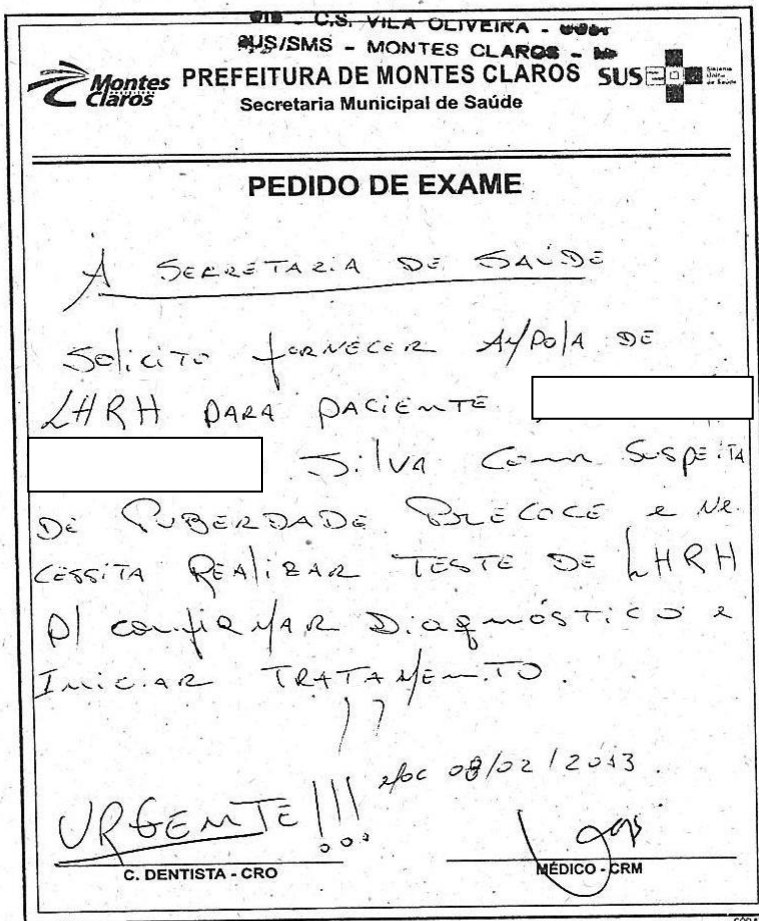 C.S. VILA OLIVEIRA -
SUS/SMS - MONTES CLAROS -
Montes Claros
PREFEITURA DE MONTES CLAROS
SUS
Sistema Único de Saúde
Secretaria Municipal de Saúde
PEDIDO DE EXAME
À SECRETARIA DE SAÚDE
Solicito FORNECER AMPOLA DE
LHRH PARA PACIENTE
Silva COM SUSPEITA
DE PUBERDADE PRECOCE e NE
CESSITA REALIZAR TESTE DE LHRH
P/ CONFIRMAR DIAGNÓSTICO e
INICIAR TRATAMENTO.
MOC 08/02/2013.
URGENTE!!!
C. DENTISTA - CRO
MÉDICO - CRM